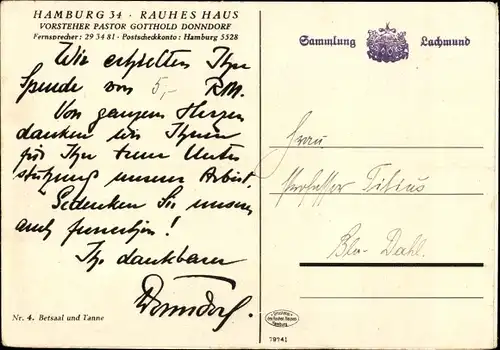 HAMBURG 34 · RAUHES HAUS
VORSTEHER PASTOR GOTTHOLD DONNDORF
Fernsprecher: 29 34 81 · Postscheckkonto: Hamburg 5528
Wir erhielten Ihre
Spende von 5,- RM.
Von ganzem Herzen
danken wir Ihnen
für Ihre treue Unter
stützung unserer Arbeit.
Gedenken Sie unserer
auch fernerhin!
Ihr dankbarer
Donndorf.
Nr. 4. Betsaal und Tanne
Sammlung Lachmund
Frau
Professor Titius
Bln-Dahl.
79741